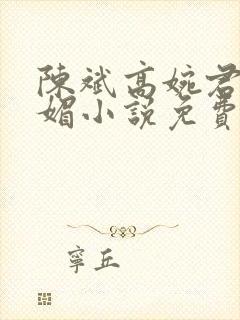 陳斌高婉君
媚小說免費
寧丘